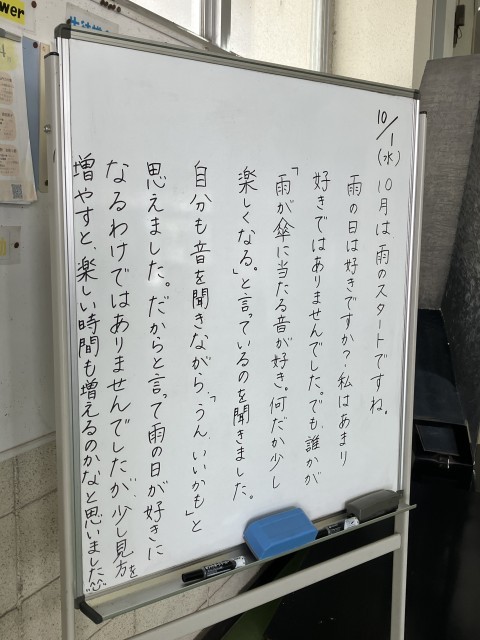 10/1(水) 10月は、雨のスタートですね。
雨の日は好きですか?私はあまり
好きではありませんでした。でも、誰かが
「雨が傘に当たる音が好き。何だか少し
楽しくなる。」と言っているのを聞きました。
自分も音を聞きながら、「うん、いいかも」と
思えました。だからと言って雨の日が好きに
なるわけではありませんでしたが、少し見方を
増やすと、楽しい時間も増えるのかなと思いました^^
wer